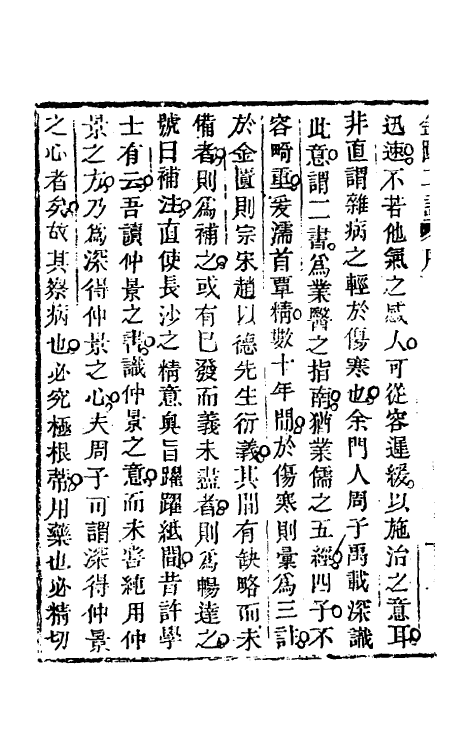 迅速不若他氣之感人可從容遲緩以施治之意耳
非直謂雜病之輕於傷寒也余門人周子禹載深識
此意謂二書爲業醫之指南猶業儒之五經四子不
容畸重爰濡首覃精數十年間於傷寒則彙爲三註
於金匱則宗宋趙以德先生衍義其間有缺略而未
備者則爲補之或有已發而義未盡者則爲暢達之
號曰補注直使長沙之精意奧旨躍躍紙間昔許學
士有云吾讀仲景之書識仲景之意而未嘗純用仲
景之方乃爲深得仲景之心夫周子可謂深得仲景
之心者矣故其察病也必究極根蒂用藥也必精切